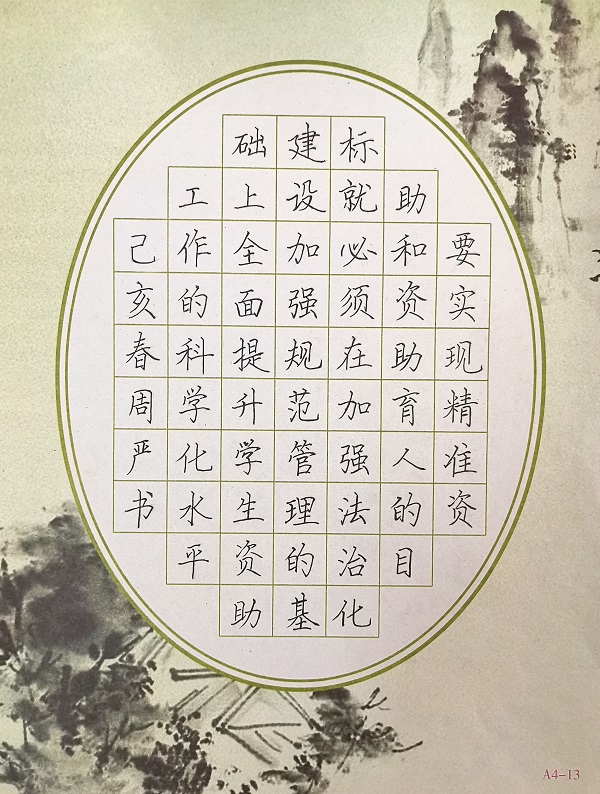 要实现精准资
助和资助育人的目
标就必须在加强法治化
建设加强规范管理的基
础上全面提升学生资助
工作的科学化水平
己亥春周严书
A4-13